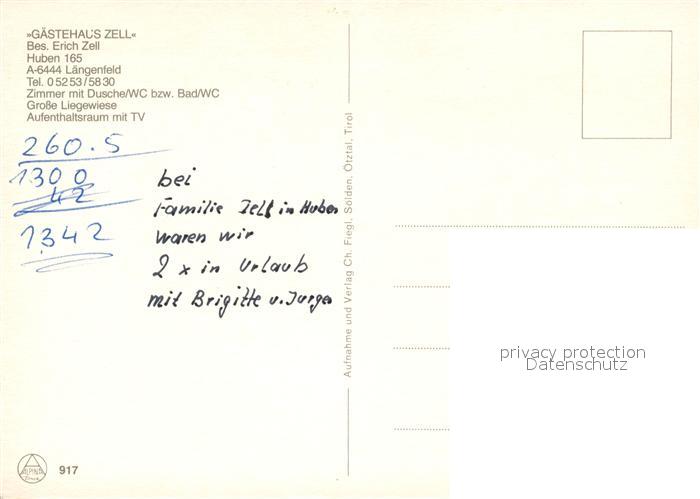 »GÄSTEHAUS ZELL«
Bes. Erich Zell
Huben 165
A-6444 Längenfeld
Tel. 05253/5830
Zimmer mit Dusche/WC bzw. Bad/WC
Große Liegewiese
Aufenthaltsraum mit TV
260.5
1300
42
1342
bei
Familie Zell in Huben
waren wir
2 x in Urlaub
mit Brigitte u. Jürgen
Aufnahme und Verlag Ch. Fiegl, Sölden, Ötztal, Tirol
privacy protection
Datenschutz
ALPINA
917